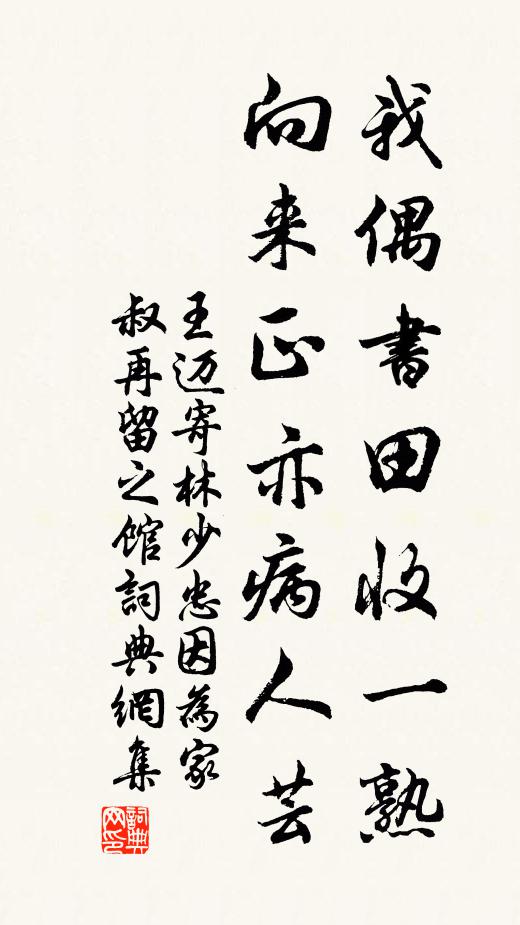 我偶書田收一熟
向来正亦病人芸
王迈寄林少忠因為家
叔再留之館詞典網集
詞典網印